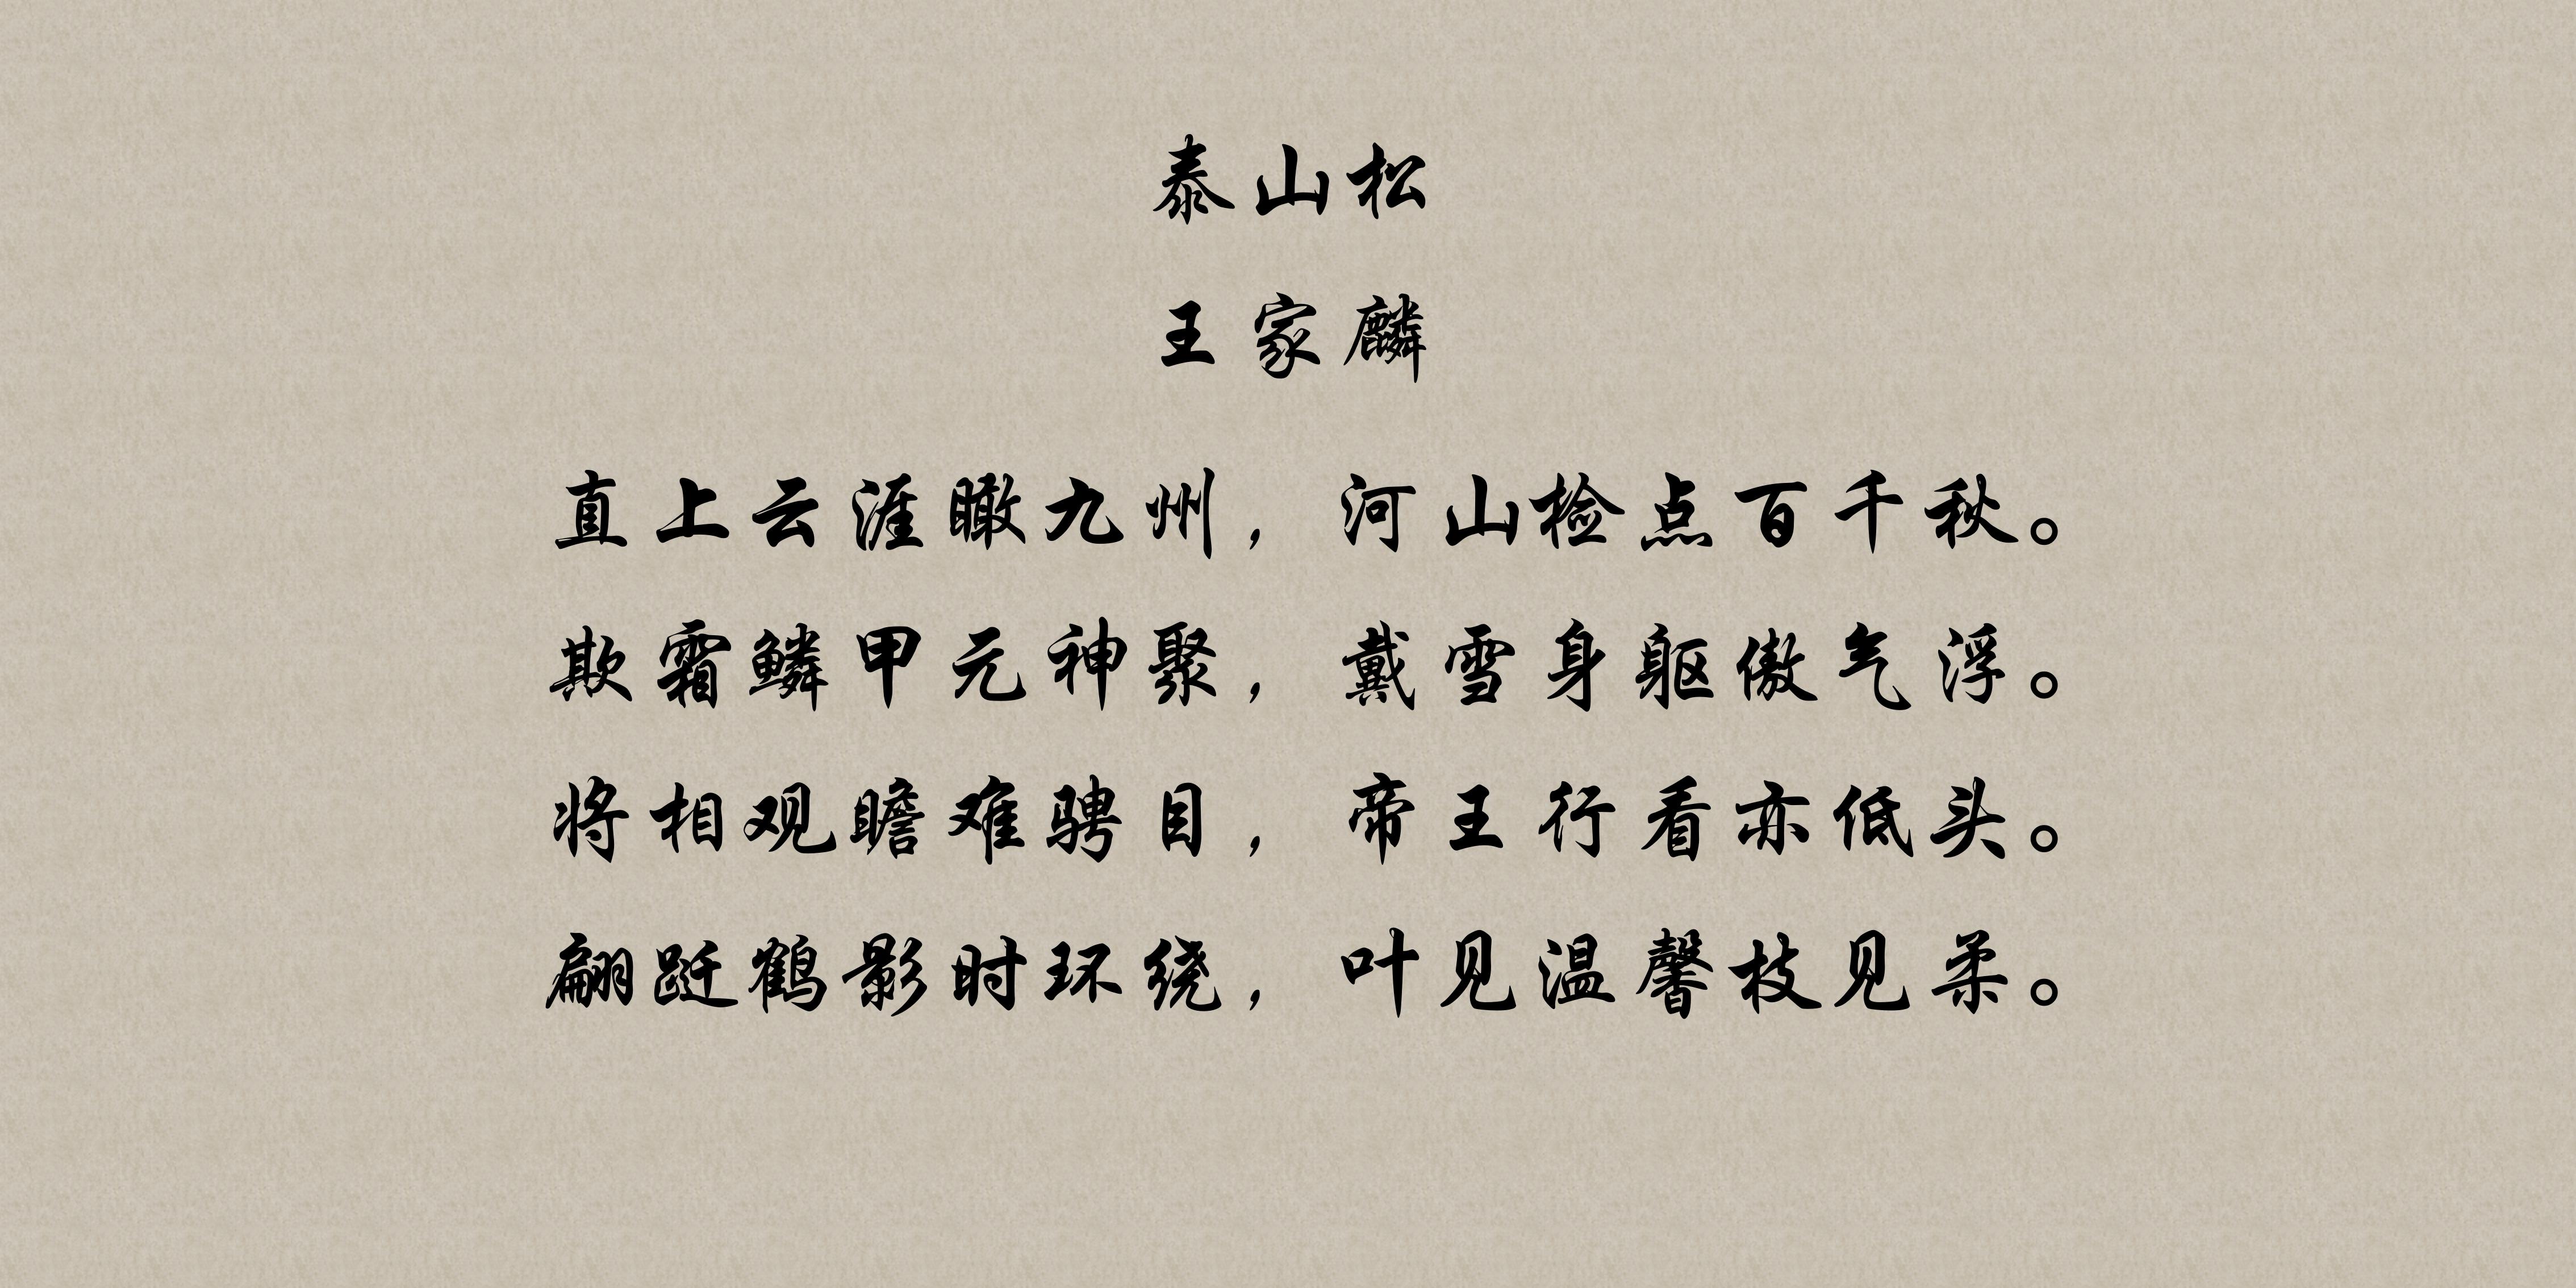 泰山松
王家麟
直上云涯瞰九州，河山检点百千秋。
欺霜鳞甲元神聚，戴雪身躯傲气浮。
将相观瞻难骋目，帝王行看亦低头。
翩跹鹤影时环绕，叶见温馨枝见柔。